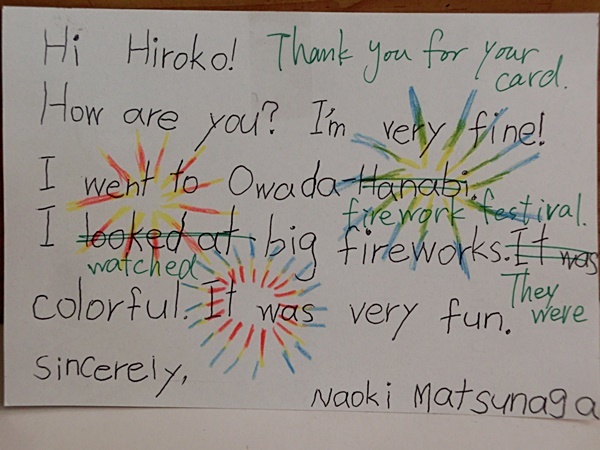 Hi Hiroko! Thank you for your card.
How are you? I'm very fine!
I went to Owada Hanabi. firework festival.
I looked at watched big fireworks. It was They were
colorful. It was very fun.
Sincerely,
Naoki Matsunaga